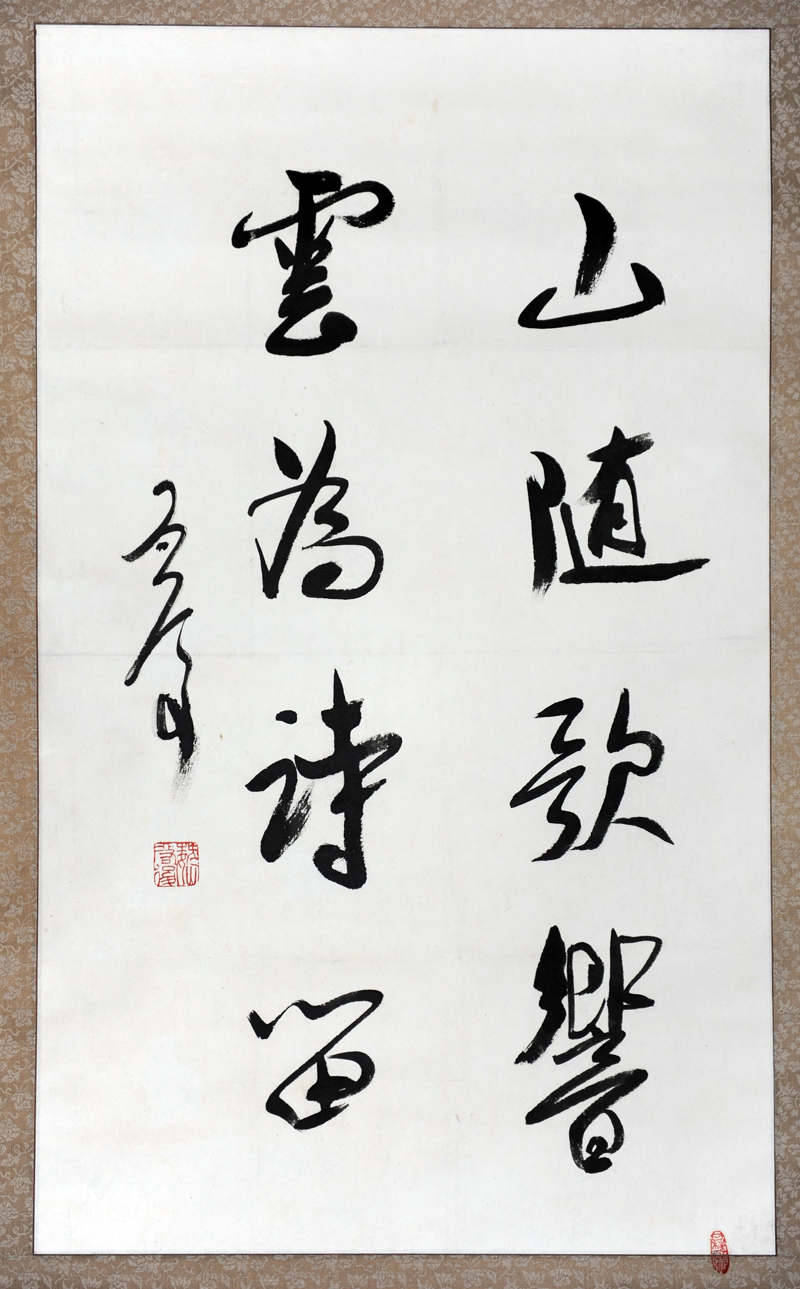 山随歌響
雲為詩留
启後